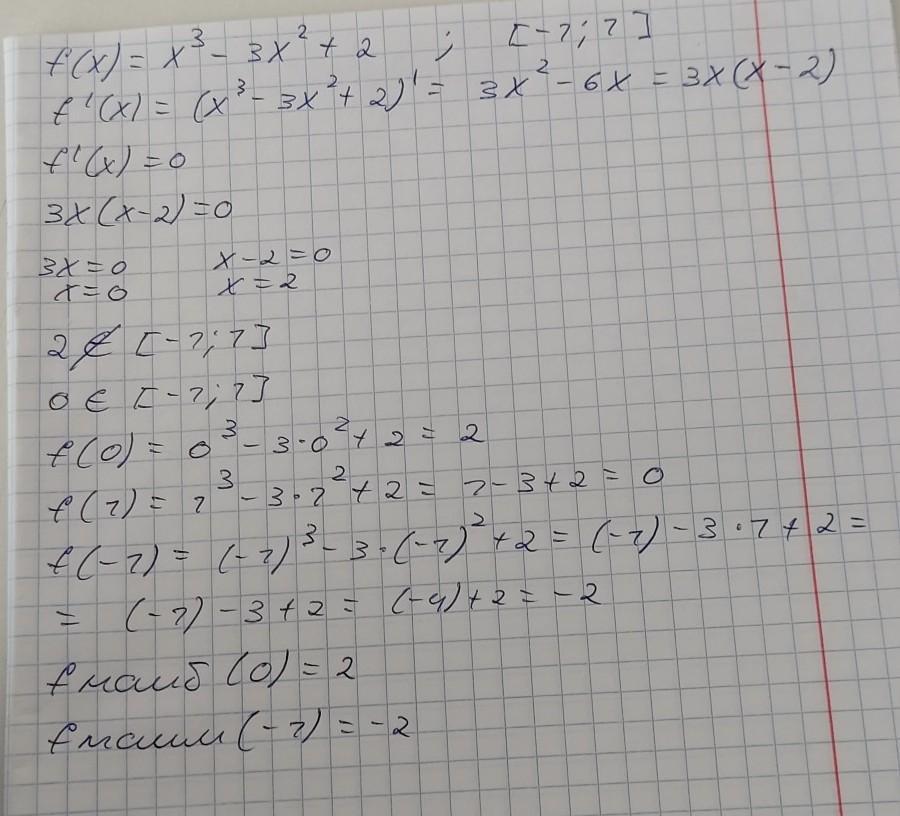 f(x) = x³ - 3x² + 2 ; [-1; 1]
f'(x) = (x³ - 3x² + 2)' = 3x² - 6x = 3x(x-2)
f'(x) = 0
3x(x-2) = 0
3x = 0 x-2 = 0
x = 0 x = 2
2 ∉ [-1; 1]
0 ∈ [-1; 1]
f(0) = 0³ - 3·0² + 2 = 2
f(1) = 1³ - 3·1² + 2 = 1 - 3 + 2 = 0
f(-1) = (-1)³ - 3·(-1)² + 2 = (-1) - 3·1 + 2 =
= (-1) - 3 + 2 = (-4) + 2 = -2
f наиб (0) = 2
f наим (-1) = -2